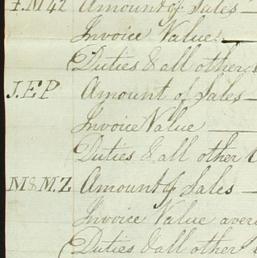 Amount of Sales —
Invoice Value
Duties & all other
J.E.P Amount of Sales —
Invoice Value —
Duties & all other
M&M.Z Amount of Sales —
Invoice Value aver
Duties & all other